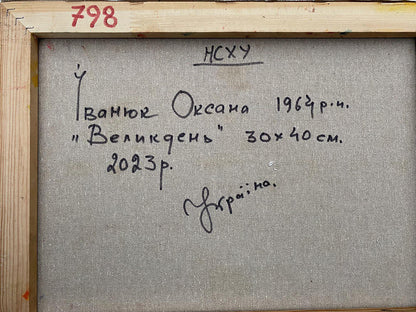 798
НСХУ
Іванюк Оксана 1964 р.н.
"Великдень" 30х40 см.
2023 р.
Україна.